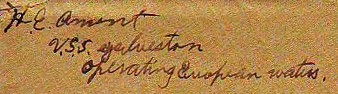 H. E. Ament
U.S.S. Galveston
Operating European waters.